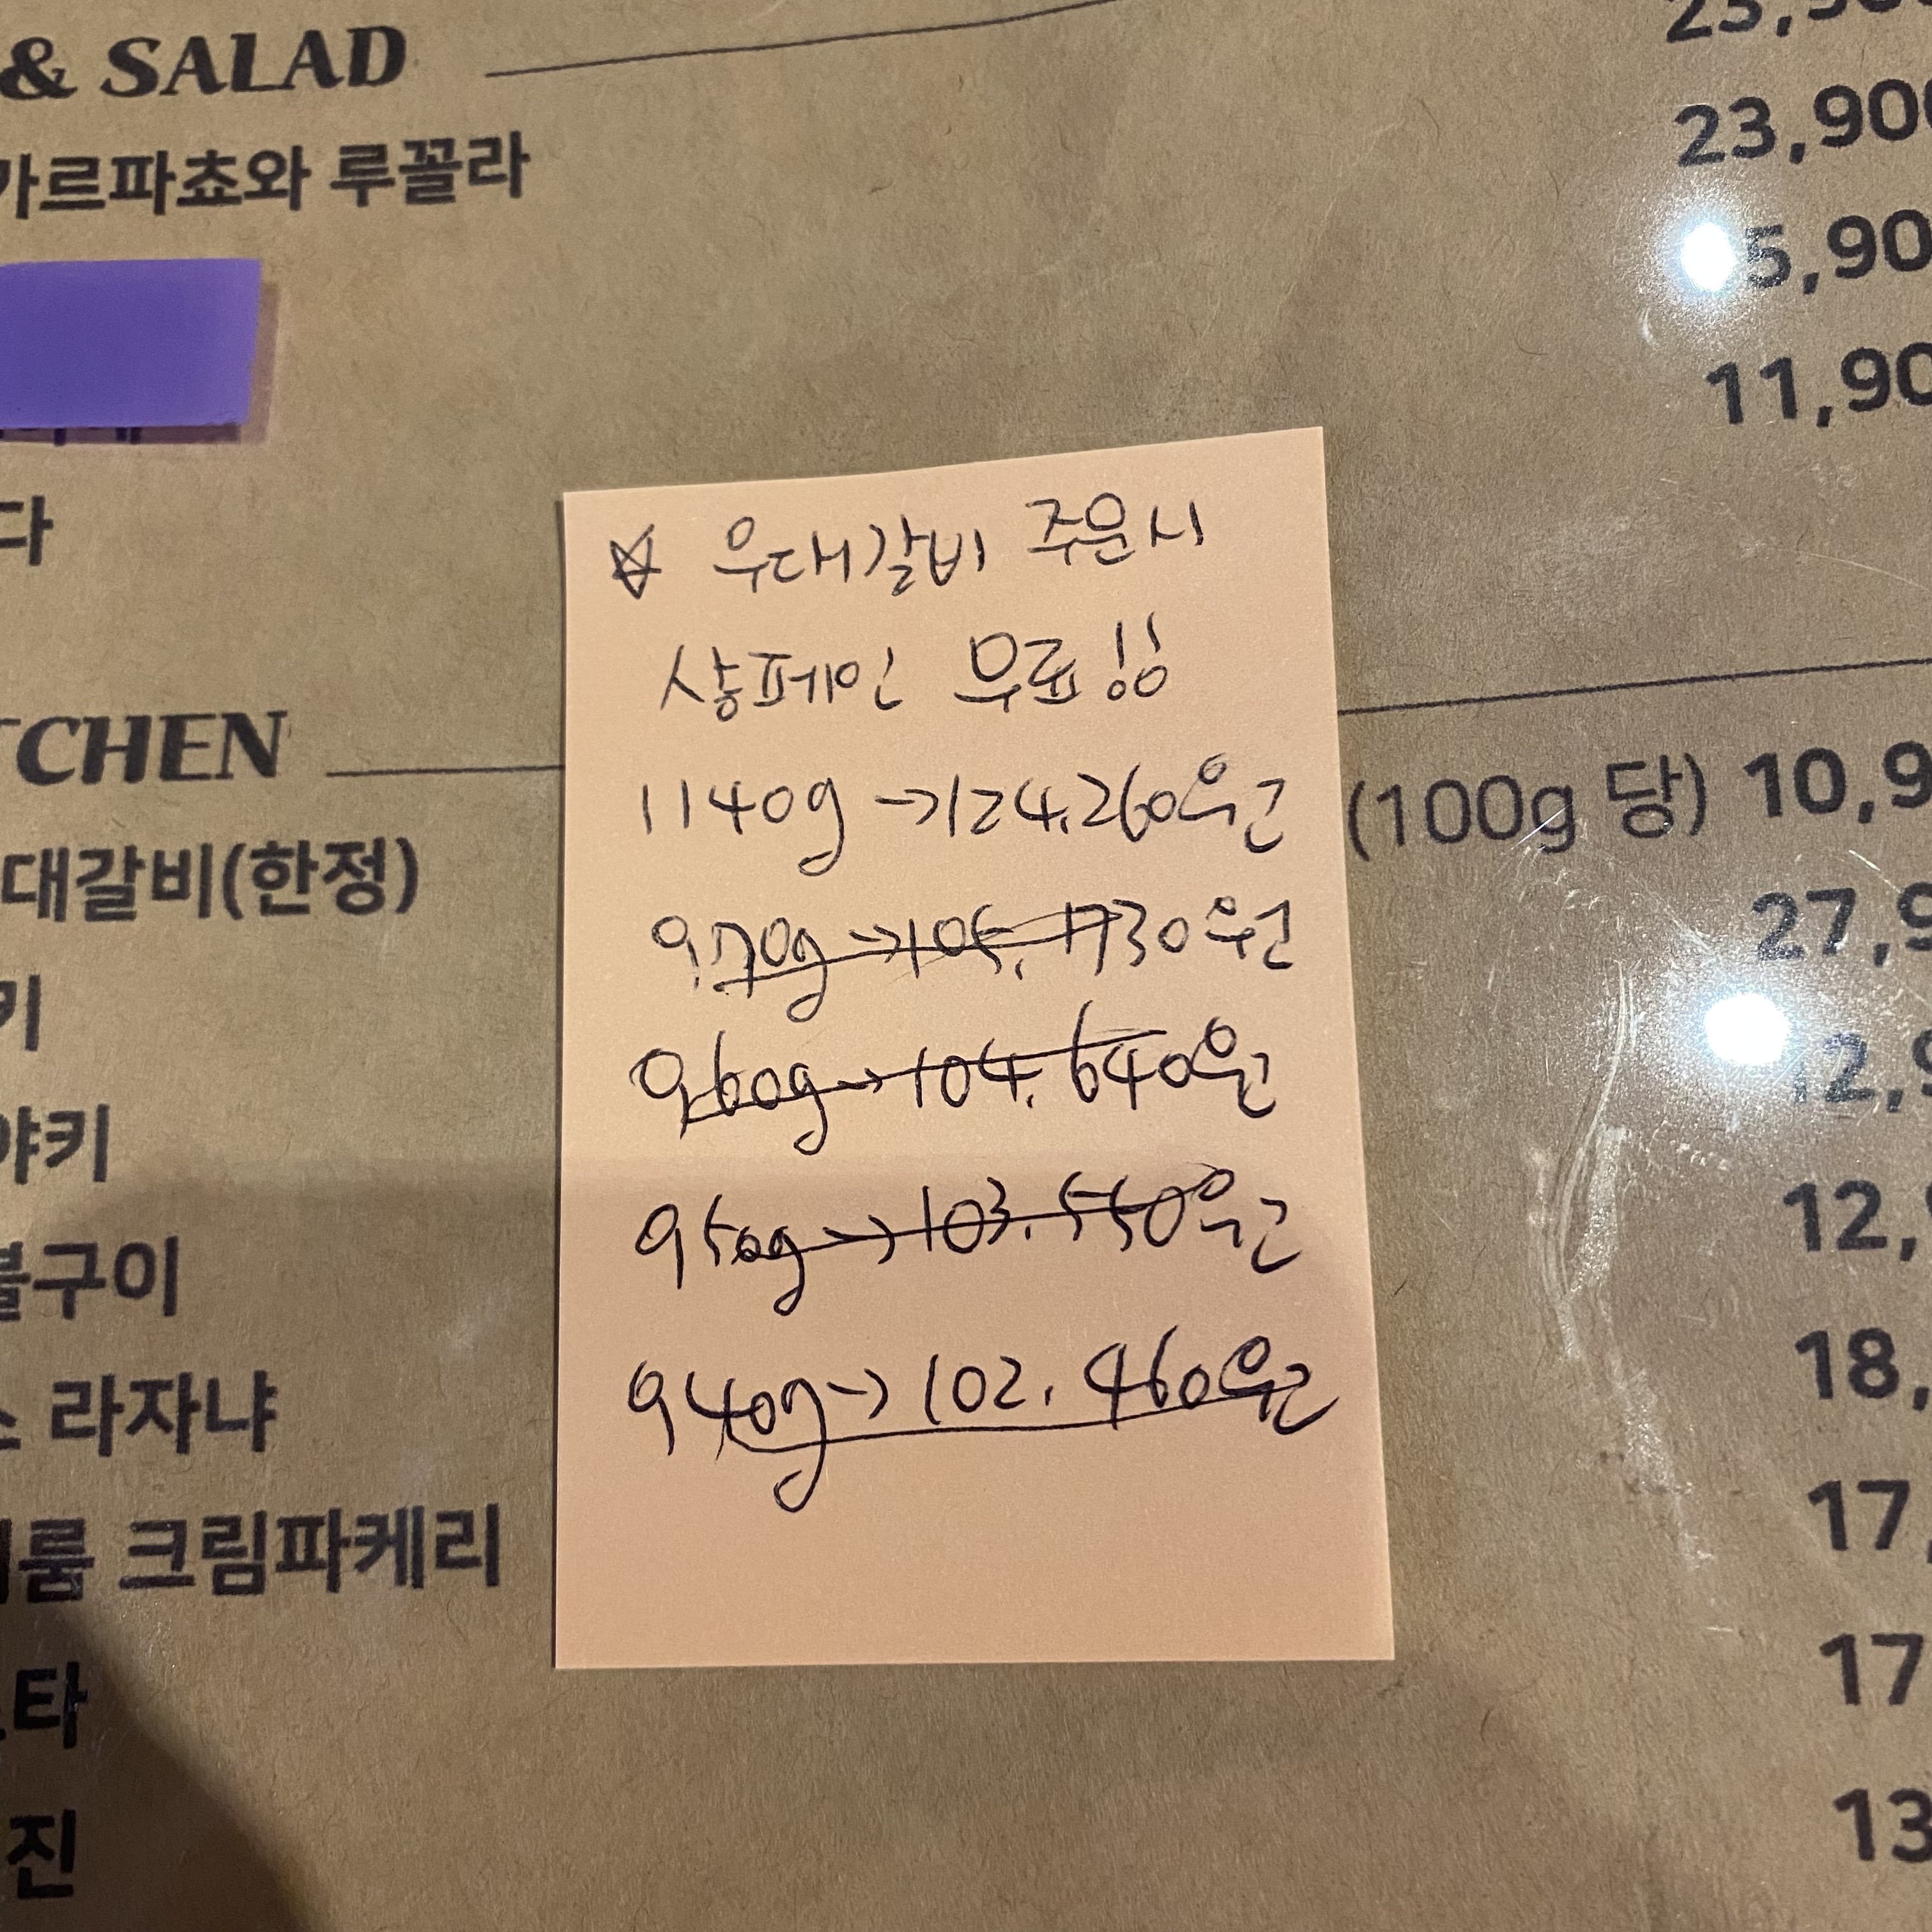 & SALAD
23,900
가르파쵸와 루꼴라
5,90
11,90
다
☆ 우대갈비 주문시
샴페인 무료!!
TCHEN
1140g →124,260원
(100g 당) 10,9
대갈비(한정)
970g →105,730원
27,9
키
960g → 104,640원
12,9
야키
950g → 103,550원
12,
불구이
940g → 102,460원
18,
스 라자냐
17,
룸 크림파케리
17
타
13
진